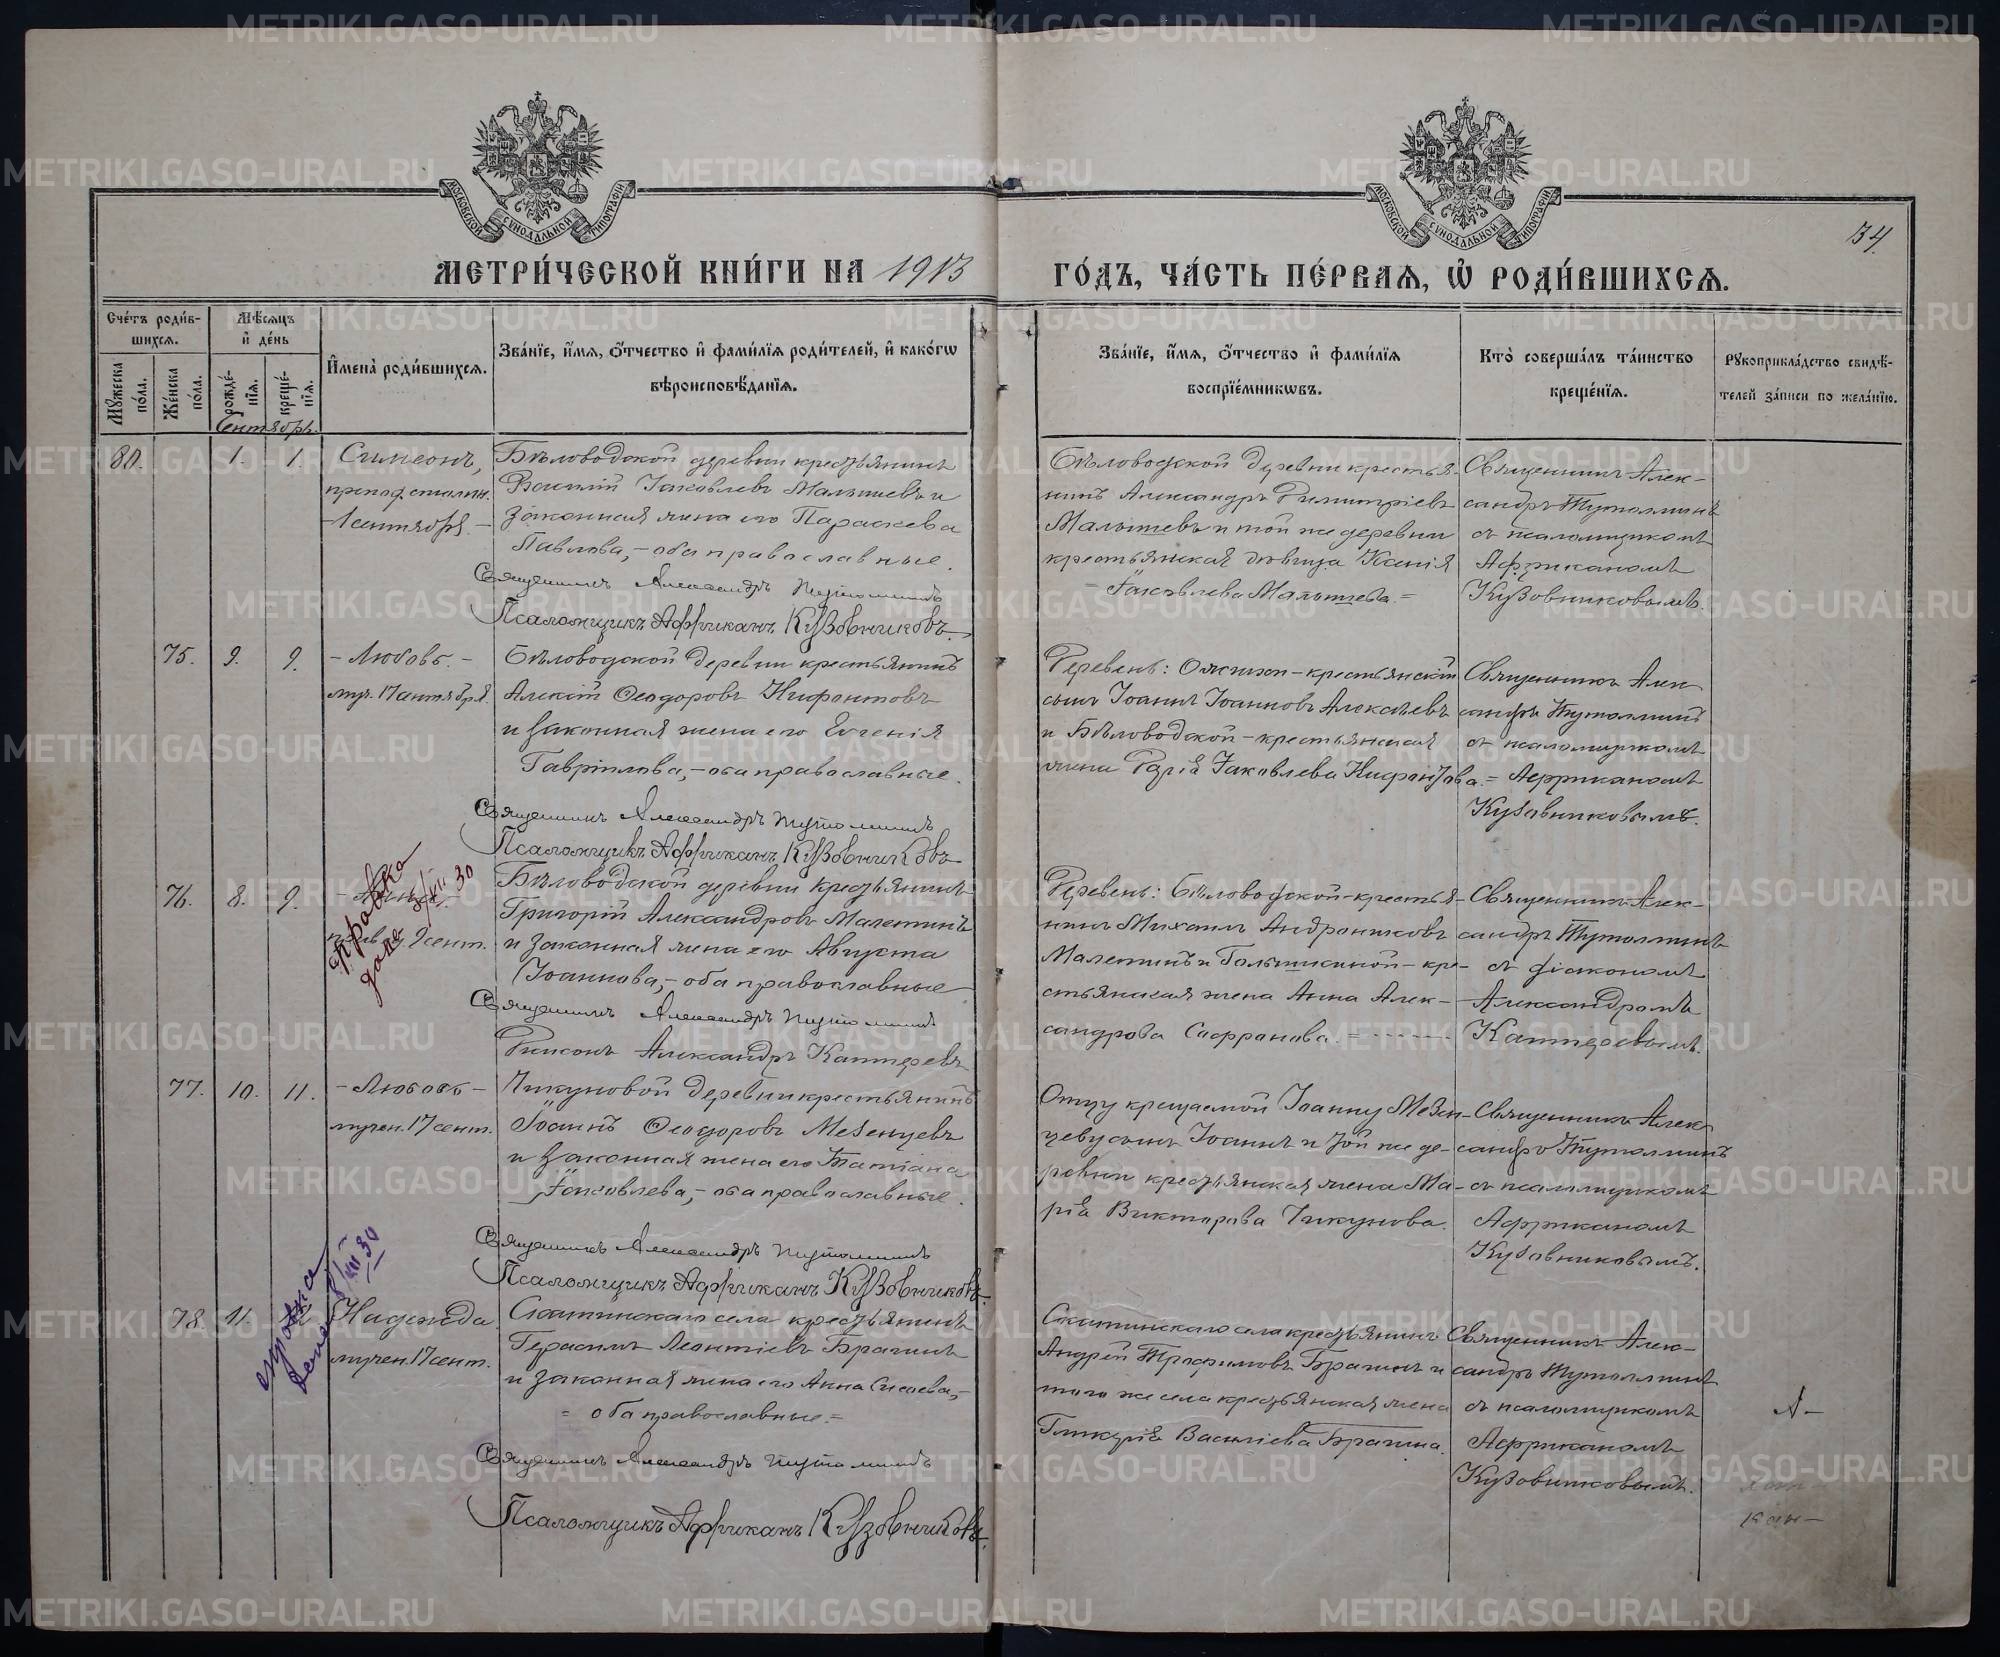 МОСКОВСКОЙ СѴНОДАЛЬНОЙ ТИПОГРАФІИ
МОСКОВСКОЙ СѴНОДАЛЬНОЙ ТИПОГРАФІИ
34.
МЕТРИ́ЧЕСКОЙ КНИ́ГИ НА 1913 ГО́ДЪ, ЧА́СТЬ ПЕ́РВАѦ, Ѽ РОДИ́ВШИХСѦ.
Сче́тъ роди́в-
шихсѧ.
Мꙋжеска по́ла.
Же́нска по́ла.
Мѣ́сѧцъ и҆ де́нь
рожде́-
нїѧ.
креще́-
нїѧ.
Сентябрь.
И҆мена̀ роди́вшихсѧ.
Зва́нїе, и҆́мѧ, ѻ҆́тчество и҆ фами́лїѧ роди́телей, и҆ како́гѡ
вѣроисповѣ́данїѧ.
Зва́нїе, и҆́мѧ, ѻ҆́тчество и҆ фами́лїѧ
воспрїе́мникѡвъ.
Кто̀ соверша́лъ та́инство
креще́нїѧ.
Рꙋкоприкла́дство свидѣ́-
телей за́писи по жела́нїю.
80. 1. 1.
Симеонъ,
препод. столпн.
1 сентября.
Бѣловодской деревни крестьянинъ
Василій Іаковлевъ Малышевъ и
законная жена его Параскева
Павлова, – оба православные.
Священникъ Александръ Тутолминъ
Псаломщикъ Африканъ Кузовниковъ.
Бѣловодской деревни крестья-
нинъ Александръ Димитріевъ
Малышевъ и той же деревни
крестьянская дѣвица Ксенія
= Іаковлева Малышева. =
Священникъ Алек-
сандръ Тутолминъ
съ псаломщикомъ
Африканомъ
Кузовниковымъ.
75. 9. 9.
– Любовь. –
муч. 17 сентября.
Бѣловодской деревни крестьянинъ
Алексій Ѳеодоровъ Нифонтовъ
и законная жена его Евгенія
Гавріилова, – оба православные.
Священникъ Александръ Тутолминъ
Псаломщикъ Африканъ Кузовниковъ
Деревень: – крестьянскій
сынъ Іоаннъ Іоанновъ Алексѣевъ
и Бѣловодской – крестьянская
жена Іаковлева Нифонтова. =
Священникъ Алек
сандръ Тутолминъ
съ псаломщикомъ
Африканомъ
Кузовниковымъ.
76. 8. 9.
– Анна –
прав. 9 сент.
справка
дана 8/XII 30
Бѣловодской деревни крестьянинъ
Григорій Александровъ Малетинъ
и законная жена его Августа
Іоаннова, – оба православные
Священникъ Александръ Тутолминъ
Діаконъ Александръ Каптеревъ
Деревень: Бѣловодской – крестья-
нинъ Михаилъ Андрониковъ
Малетинъ и – кре-
стьянская жена Анна Алек-
сандрова Сафронова. =
Священникъ Алек-
сандръ Тутолминъ
съ діакономъ
Александромъ
Каптеревымъ.
77. 10. 11.
– Любовь –
мучен. 17 сент.
Чикуновой деревни крестьянинъ
Іоаннъ Ѳеодоровъ Мезенцевъ
и законная жена его Татіана
Іаковлева, – оба православные.
Священникъ Александръ Тутолминъ
Псаломщикъ Африканъ Кузовниковъ.
Отцу крещаемой Іоанну Мезен-
цеву сынъ Іоаннъ и той же де-
ревни крестьянская жена Ма-
рія Викторова Чикунова.
Священникъ Алек
сандръ Тутолминъ
съ псаломщикомъ
Африканомъ
Кузовниковымъ.
78. 11.
справка
дана 8/XII 30
Надежда
мучен. 17 сент.
Скатинскаго села крестьянинъ
Герасимъ Леонтіевъ Брагинъ
и законная жена его Анна Сисоева, –
= оба православные. =
Священникъ Александръ Тутолминъ
Псаломщикъ Африканъ Кузовниковъ.
Скатинскаго села крестьянинъ
Андрей Трофимовъ Брагинъ и
того же села крестьянская жена
Гликерія Василіева Брагина.
Священникъ Алек-
сандръ Тутолминъ
съ псаломщикомъ
Африканомъ
Кузовниковымъ.
METRIKI.GASO-URAL.RU